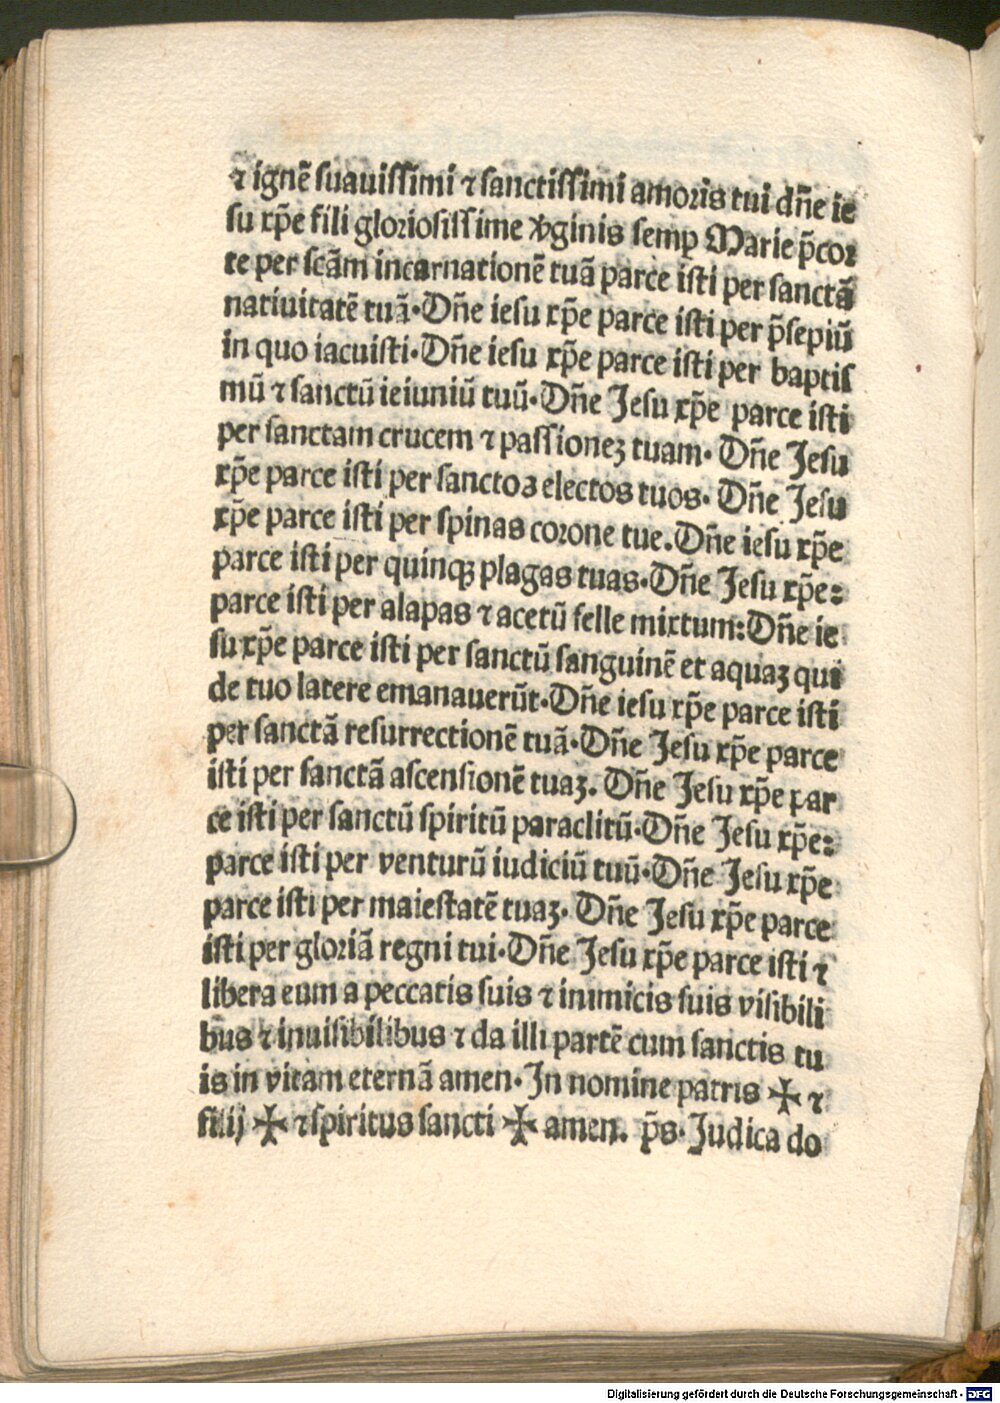 ⁊ ignē suauissimi ⁊ sanctissimi amoris tui dn̄e ie
su xp̄e fili gloriosissime v̓ginis semꝑ Marie p̄cor
te per scām incarnationē tuā parce isti per sanctā
natiuitatē tuā·Dn̄e iesu xp̄e parce isti per p̄sepiū
in quo iacuisti·Dn̄e iesu xp̄e parce isti per baptis
mū ⁊ sanctū ieiuniū tuū·Dn̄e Jesu xp̄e parce isti
per sanctam crucem ⁊ passioneꝫ tuam· Dn̄e Jesu
xp̄e parce isti per sanctos electos tuos· Dn̄e Jesu
xp̄e parce isti per spinas corone tue.Dn̄e iesu xp̄e
parce isti per quinqꝫ plagas tuas·Dn̄e Jesu xp̄e:
parce isti per alapas ⁊ acetū felle mixtum:Dn̄e ie
su xp̄e parce isti per sanctū sanguinē et aquaꝫ qui
de tuo latere emanauerūt·Dn̄e iesu xp̄e parce isti
per sanctā resurrectionē tuā·Dn̄e Jesu xp̄e parce
isti per sanctā ascensionē tuaꝫ. Dn̄e Jesu xp̄e par
ce isti per sanctū spiritū paraclitū·Dn̄e Jesu xp̄e:
parce isti per venturū iudiciū tuū·Dn̄e Jesu xp̄e
parce isti per maiestatē tuaꝫ· Dn̄e Jesu xp̄e parce
isti per gloriā regni tui·Dn̄e Jesu xp̄e parce isti ⁊
libera eum a peccatis suis ⁊ inimicis suis visibili
bus ⁊ inuisibilibus ⁊ da illi partē cum sanctis tu
is in vitam eternā amen·In nomine patris ✠ ⁊
filij ✠ ⁊ spiritus sancti ✠ amen. p̄s·Judica do
Digitalisierung gefördert durch die Deutsche Forschungsgemeinschaft - DFG